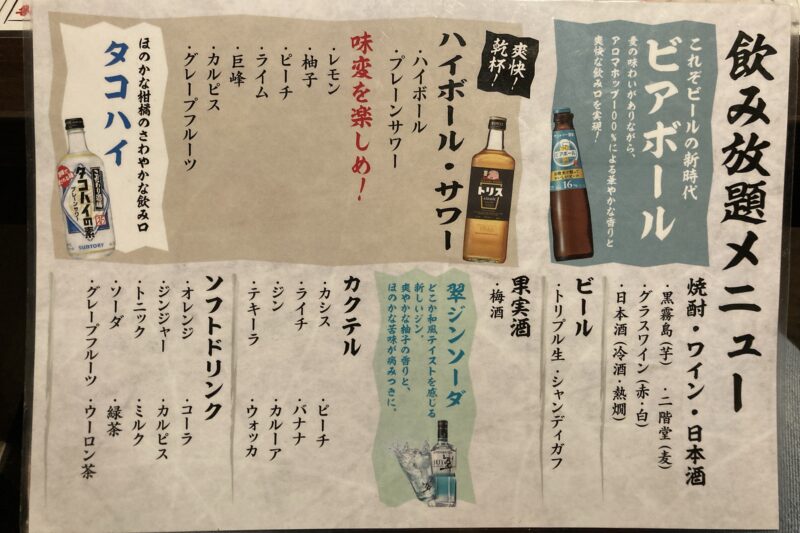 飲み放題メニュー
これぞビールの新時代
ビアボール
麦の味わいがありながら、
アロマホップ100%による華やかな香りと
爽快な飲み口を実現!
16%
爽快!
乾杯!
ハイボール・サワー
・ハイボール
・プレーンサワー
トリス
味変を楽しめ!
・レモン
・柚子
・ピーチ
・ライム
・巨峰
・カルピス
・グレープフルーツ
ほのかな柑橘のさわやかな飲み口
タコハイ
タコハイの素
プレーンサワー
SUNTORY
焼酎・ワイン・日本酒
・黒霧島(芋) ・二階堂(麦)
・グラスワイン(赤・白)
・日本酒(冷酒・熱燗)
ビール
・トリプル生 ・シャンディガフ
果実酒
・梅酒
翠ジンソーダ
どこか和風テイストを感じる
新しいジン。
爽やかな柚子の香りと、
ほのかな苦味が病みつきに。
翠
カクテル
・カシス ・ピーチ
・ライチ ・バナナ
・ジン ・カルーア
・テキーラ ・ウォッカ
ソフトドリンク
・オレンジ ・コーラ
・ジンジャー ・カルピス
・トニック ・ミルク
・ソーダ ・緑茶
・グレープフルーツ ・ウーロン茶